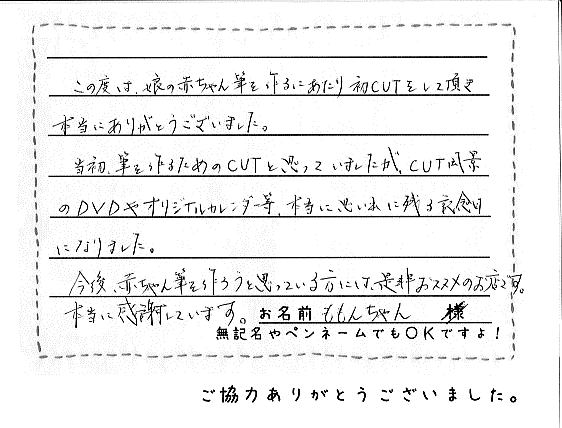 この度は、娘の赤ちゃん筆を作るにあたり初CUTをして頂き
本当にありがとうございました。
当初、筆を作るためのCUTと思っていましたが、CUT風景
のDVDやオリジナルカレンダー等、本当に思い出に残る記念日
になりました。
今後、赤ちゃん筆を作ろうと思っている方には、是非おススメのお店です。
本当に感謝しています。 お名前 ももんちゃん 様
無記名やペンネームでもOKですよ！
ご協力ありがとうございました。